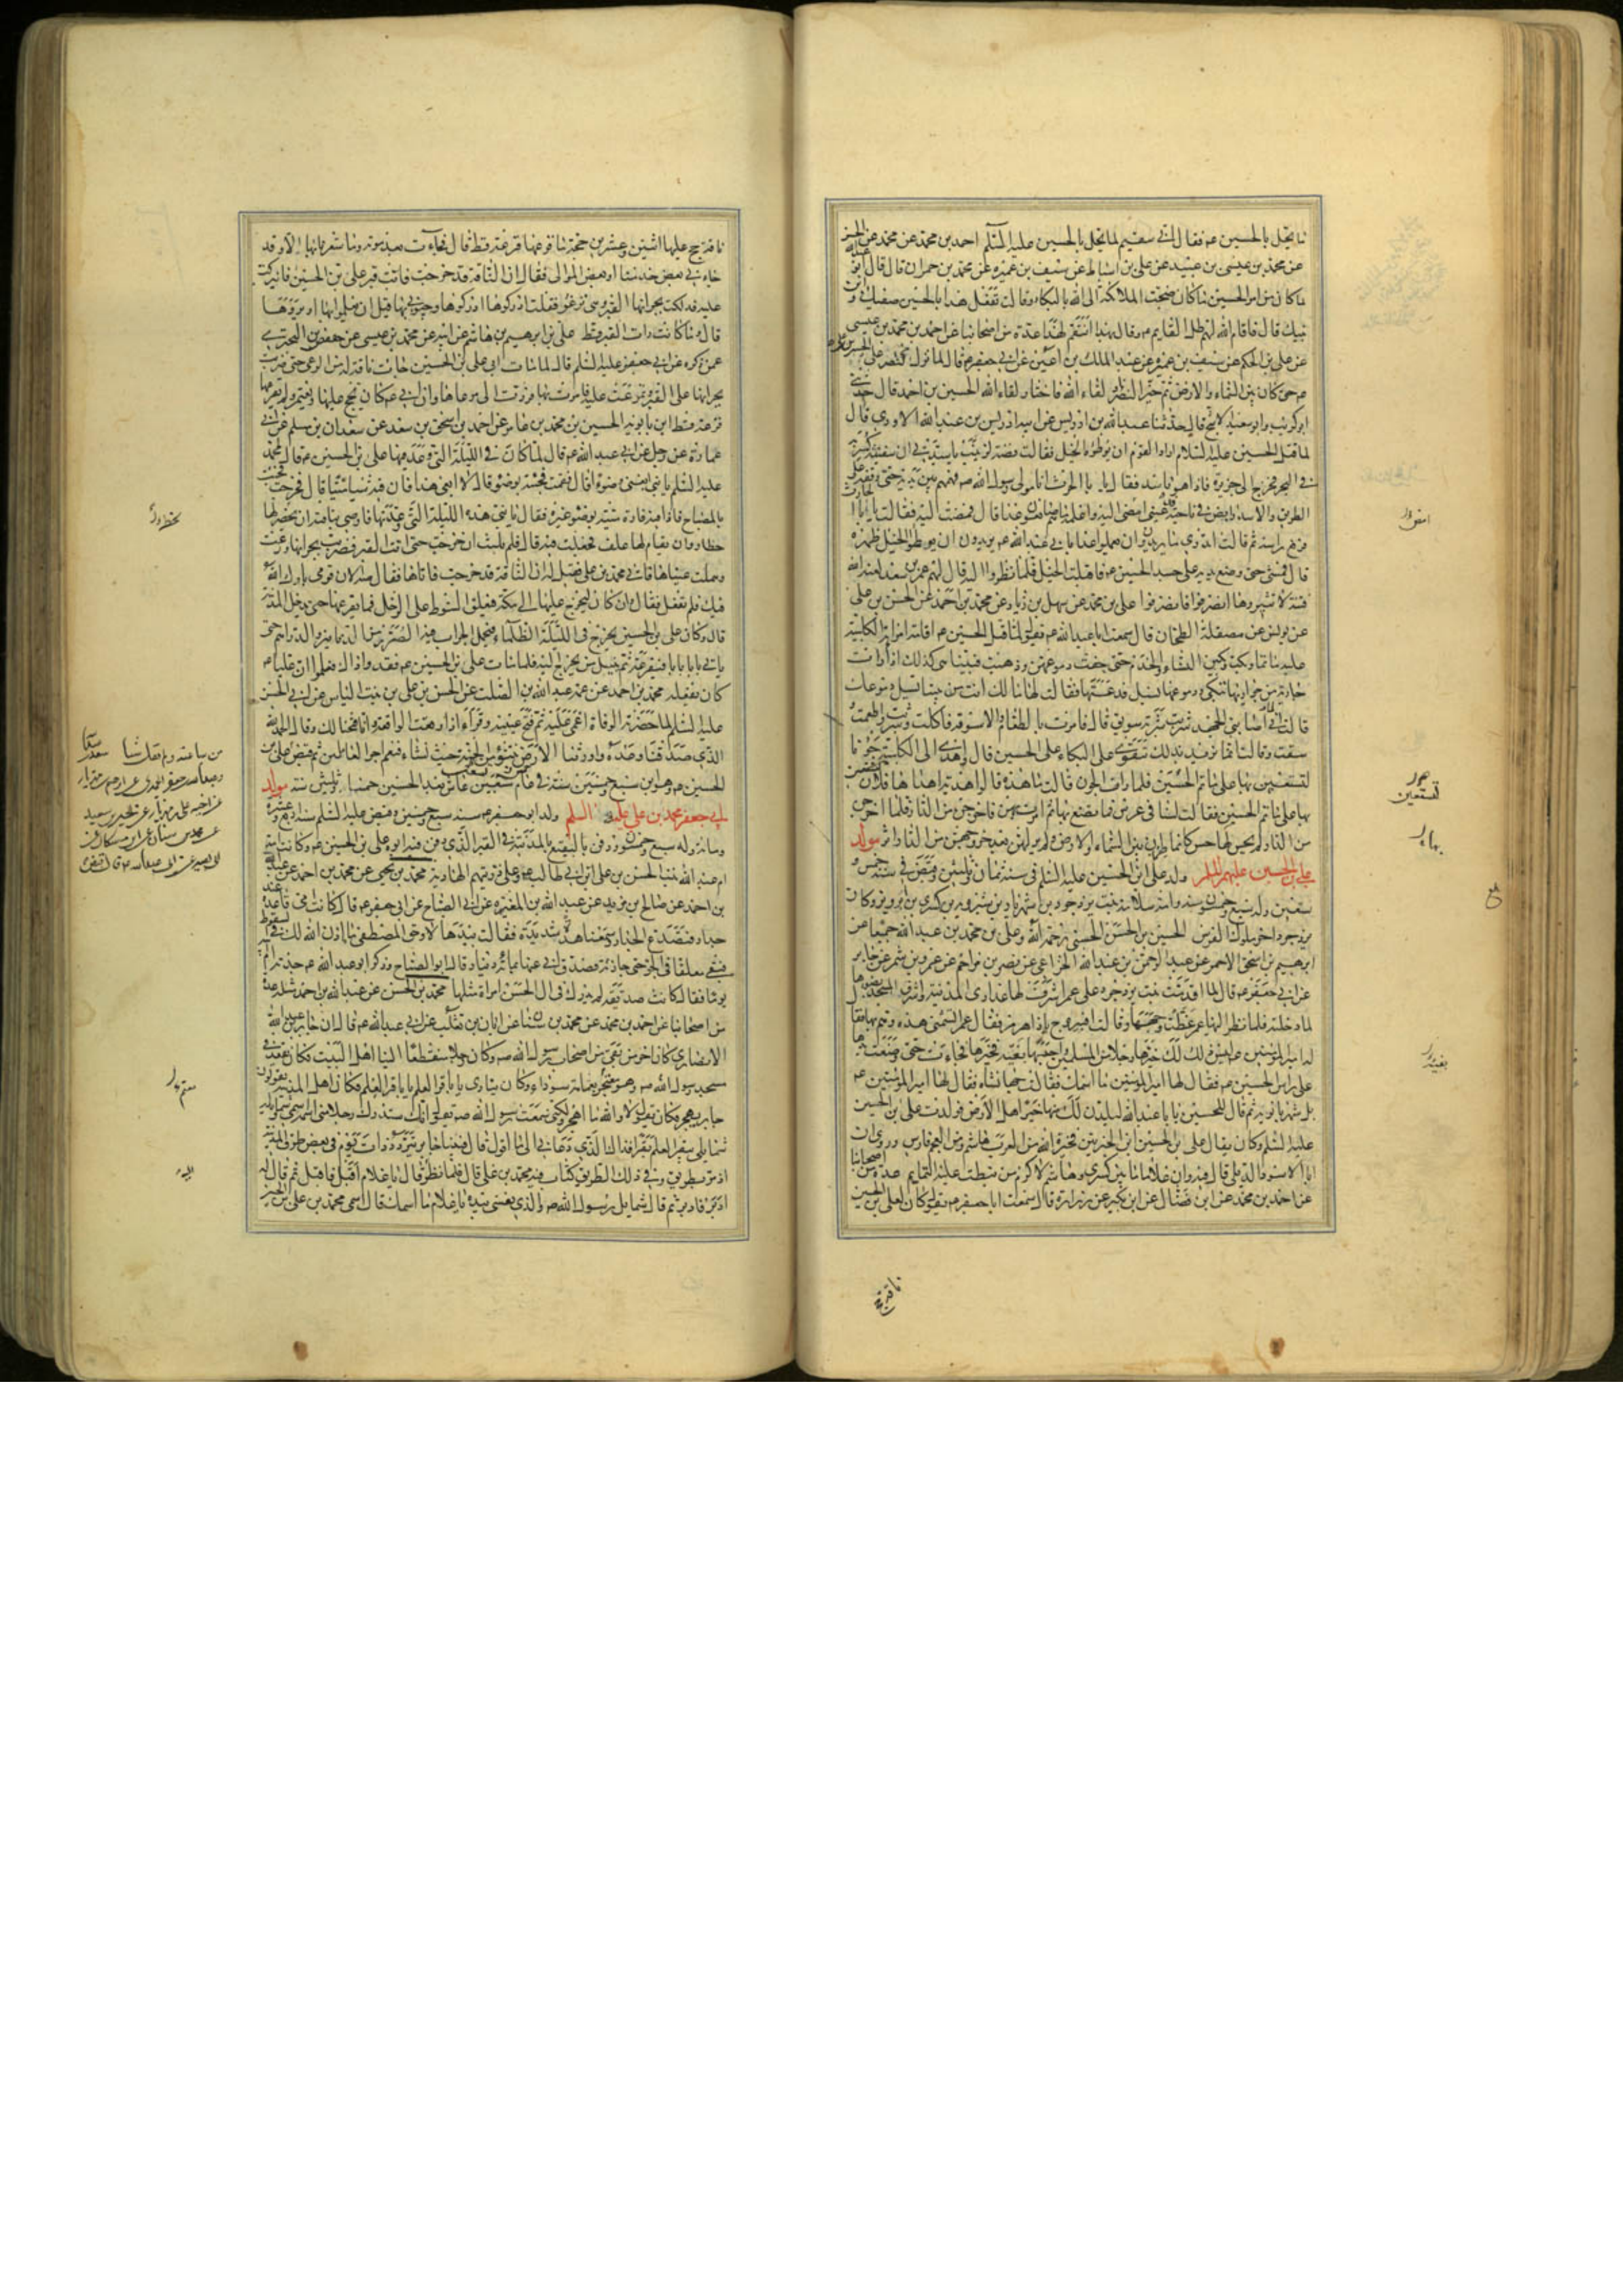 ما يحل بالحسين ع فقال اني سقيم لما يحل بالحسين عليه السلم احمد بن محمد عن محمد بن الحسن
عن محمد بن عيسى بن عبيد عن علي بن اسباط عن سيف بن عميره عن محمد بن حمران قال قال ابو عبدالله
ما كان من امر الحسين ما كان ضجت الملائكة الى الله بالبكاء وقالت تفعل هذا بالحسين صفيك وابن
نبيك قال فاقام الله لهم ظل القايم ع وقال بهذا انتقم لهذا عدة من اصحابنا عن احمد بن محمد بن عيسى
عن علي بن الحكم عن سيف بن عميره عن عبد الملك بن اعين عن ابي جعفر ع قال لما نزل النصر على الحسين بن علي
ع حتى كان بين السماء والارض ثم خير النصر او لقاء الله فاختار لقاء الله الحسين بن احمد قال حدثني
ابو كريب وابو سعيد الاشج قال حدثنا عبد الله بن ادريس عن ابيه ادريس بن عبد الله الاودي قال
لما قتل الحسين عليه السلام اراد القوم ان يوطؤه الخيل فقالت فضة لزينب يا سيدتي ان سفينة كسر به
في البحر فخرج الى جزيرة فاذا هو باسد فقال يا ابا الحرث انا مولى رسول الله ص فهمهم بين يديه حتى وقفه على
الطريق والاسد رابض في ناحية فدعيني امضي اليه واعلمه ما هم صانعون غدا قال فمضت اليه فقالت يا ابا الحارث
فرفع راسه ثم قالت اتدري ما يريدون ان يعملوا غدا بابي عبد الله ع يريدون ان يوطئوا الخيل ظهره
قال فمشى حتى وضع يديه على جسد الحسين ع فاقبلت الخيل فلما نظروا اليه قال لهم عمر بن سعد لعنه الله
فتنة لا تثيروها انصرفوا فانصرفوا علي بن محمد عن سهل بن زياد عن محمد بن احمد عن الحسن بن علي
عن يونس عن مصقلة الطحان قال سمعت ابا عبد الله ع يقول لما قتل الحسين ع اقامت امراته الكلبية
عليه ماتما وبكت وبكين النساء والخدم حتى جفت دموعهن وذهبت فبينا هي كذلك اذ رات
جارية من جواريها تبكي ودموعها تسيل فدعتها فقالت لها ما لك انت من بيننا تسيل دموعك
قالت اني لما اصابني الجهد شربت شربة سويق قال فامرت بالطعام والاسوقة فاكلت وشربت واطعمت
وسقت وقالت انما نريد بذلك نتقوى على البكاء على الحسين قال واهدي الى الكلبية جونا
لتستعين بها على ماتم الحسين فلما رات الجون قالت ما هذه قالوا هدية اهداها فلان
بها على ماتم الحسين فقالت لسنا في عرس فما نصنع بها ثم امرت بهن فاخرجن من الدار فلما اخرجن
من الدار لم يحس لها حس كانما طرن بين السماء والارض ولم ير لهن بعد خروجهن من الدار اثر مولد
علي بن الحسين عليهم السلم ولد علي ابن الحسين عليه السلم في سنة ثمان وثلثين وقبض في سنة خمس و
تسعين وله سبع وخمسون سنة وامه سلامة بنت يزدجرد بن شهريار بن شيرويه بن كسرى بن ابرويز وكان
يزدجرد اخر ملوك الفرس الحسين بن الحسن الحسني رحمه الله وعلي بن محمد بن عبد الله جميعا عن
ابرهيم بن اسحق الاحمر عن عبد الرحمن بن عبد الله الخزاعي عن نصر بن مزاحم عن عمرو بن شمر عن جابر
عن ابي جعفر ع قال لما اقدمت بنت يزدجرد على عمر اشرفت لها عذارى المدينة واشرق المسجد بضوئها
لما دخلته فلما نظر اليها عمر غطت وجهها وقالت اف بيروج بادا هرمز فقال عمر اتشتمني هذه وهم بها فقال
له امير المؤمنين ع ليس ذلك لك خيرها رجلا من المسلمين واحسبها بفيئه فخيرها فجاءت حتى وضعت يدها
على راس الحسين ع فقال لها امير المؤمنين ما اسمك فقالت جهان شاه فقال لها امير المؤمنين ع
بل شهربانويه ثم قال للحسين يا ابا عبد الله ليلدن لك منها خير اهل الارض فولدت علي بن الحسين
عليه السلم وكان يقال علي بن الحسين ابن الخيرتين فخيرة الله من العرب هاشم ومن العجم فارس وروي ان
ابا الاسود الديلي قال فيه وان غلاما بين كسرى وهاشم لاكرم من نيطت عليه التمايم عدة من اصحابنا
عن احمد بن محمد عن ابن فضال عن ابن بكير عن زرارة قال سمعت ابا جعفر ع يقول كان لعلي بن الحسين
ناقة حج
تستعين
ناقة حج عليها اثنين وعشرين حجة ما قرعها قرعة قط قال فجاءت بعد موته وما شعرنا بها الا وقد
جاءني بعض خدمنا او بعض الموالي فقال ان الناقة قد خرجت فاتت قبر علي بن الحسين فانبركت
عليه فدلكت بجرانها القبر وهي ترغو فقلت ادركوها ادركوها وجيئوني بها قبل ان يعلموا بها او يروها
قال وما كانت رات القبر قط علي بن ابرهيم بن هاشم عن ابيه عن محمد بن عيسى عن حفص بن البختري
عمن ذكره عن ابي جعفر عليه السلم قال لما مات ابي علي بن الحسين جاءت ناقة له من الرعي حتى ضربت
بجرانها على القبر وتمرغت عليه فامرت بها فردت الى مرعاها وان ابي ع كان يحج عليها ويعتمر ولم يقرعها
قرعة قط ابن بابويه الحسين بن محمد بن عامر عن احمد بن اسحق بن سعد عن سعدان بن مسلم عن ابي
عمارة عن رجل عن ابي عبد الله ع قال لما كان في الليلة التي وعد فيها علي بن الحسين ع قال لمحمد
عليه السلم يا بني ابغني وضوءا قال فقمت فجئته بوضوء قال لا ابغي هذا فان فيه شيئا ميتا قال فخرجت فجئت
بالمصباح فاذا فيه فارة ميتة فجئته بوضوء غيره فقال يا بني هذه الليلة التي وعدتها فاوصى بناقته ان يحضر لها
حظار وان يقام لها علف فجعلت فيه قال فلم تلبث ان خرجت حتى اتت القبر فضربت بجرانها ورغت
وهملت عيناها فاتي محمد بن علي فقيل له ان الناقة قد خرجت فاتاها فقال صه الان قومي بارك الله
فيك فلم تفعل فقال وان كان ليخرج عليها الى مكة فيعلق السوط على الرحل فما يقرعها حتى يدخل المدينة
قال وكان علي بن الحسين يخرج في الليلة الظلماء فيحمل الجراب فيه الصرر من الدنانير والدراهم حتى
ياتي بابا بابا فيقرعه ثم ينيل من يخرج اليه فلما مات علي بن الحسين ع فقدوا ذاك فعلموا ان عليا ع
كان يفعله محمد بن احمد عن عمه عبد الله بن الصلت عن الحسن بن علي بن بنت الياس عن ابي الحسن
عليه السلم لما حضرته الوفاة اغمي عليه ثم فتح عينيه وقرا اذا وقعت الواقعة وانا فتحنا لك وقال الحمد لله
الذي صدقنا وعده واورثنا الارض نتبوء من الجنة حيث نشاء فنعم اجر العاملين ثم قبض علي بن
الحسين ع وهو ابن سبع وخمسين سنة في عام خمس وتسعين عاش بعد الحسين خمسا وثلثين سنة مولد
ابي جعفر محمد بن علي عليه السلم ولد ابو جعفر ع سنة سبع وخمسين وقبض عليه السلم سنة اربع عشرة
وماية وله سبع وخمسون ودفن بالبقيع بالمدينة في القبر الذي دفن فيه ابوه علي بن الحسين ع وكانت امه
ام عبد الله بنت الحسن بن علي ابن ابي طالب ع وعلى ذريتهم الهادية محمد بن يحيى عن محمد بن احمد عن عبد الله
بن احمد عن صالح بن مزيد عن عبد الله بن المغيرة عن ابي الصباح عن ابي جعفر ع قال كانت امي قاعدة عند
جدار فتصدع الجدار وسمعنا هدة شديدة فقالت بيدها لا وحق المصطفى ما اذن الله لك في السقوط
فبقي معلقا في الجو حتى جازته فتصدق ابي عنها بمائة دينار قال ابو الصباح وذكر ابو عبد الله ع جدته ام ابيه
يوما فقال كانت صديقة لم يدرك في ال الحسن امراة مثلها محمد بن الحسن عن عبد الله بن احمد مثله عدة
من اصحابنا عن احمد بن محمد عن محمد بن سنان عن ابان بن تغلب عن ابي عبد الله ع قال ان جابر بن عبد الله
الانصاري كان اخر من بقي من اصحاب رسول الله ص وكان رجلا منقطعا الينا اهل البيت فكان يقعد في
مسجد رسول الله ص وهو معتجر بعمامة سوداء وكان ينادي يا باقر العلم يا باقر العلم فكان اهل المدينة يقولون
جابر يهجر فكان يقول لا والله ما اهجر ولكني سمعت رسول الله ص يقول انك ستدرك رجلا مني اسمه اسمي وشمايله
شمايلي يبقر العلم بقرا فذاك الذي دعاني الى ما اقول قال فبينا جابر يتردد ذات يوم في بعض طرق المدينة
اذ مر بطريق في ذلك الطريق كتاب فيه محمد بن علي قال فلما نظر قال يا غلام اقبل فاقبل ثم قال له
ادبر فادبر ثم قال شمايل رسول الله ص والذي نفسي بيده يا غلام ما اسمك قال اسمي محمد بن علي بن الحسين